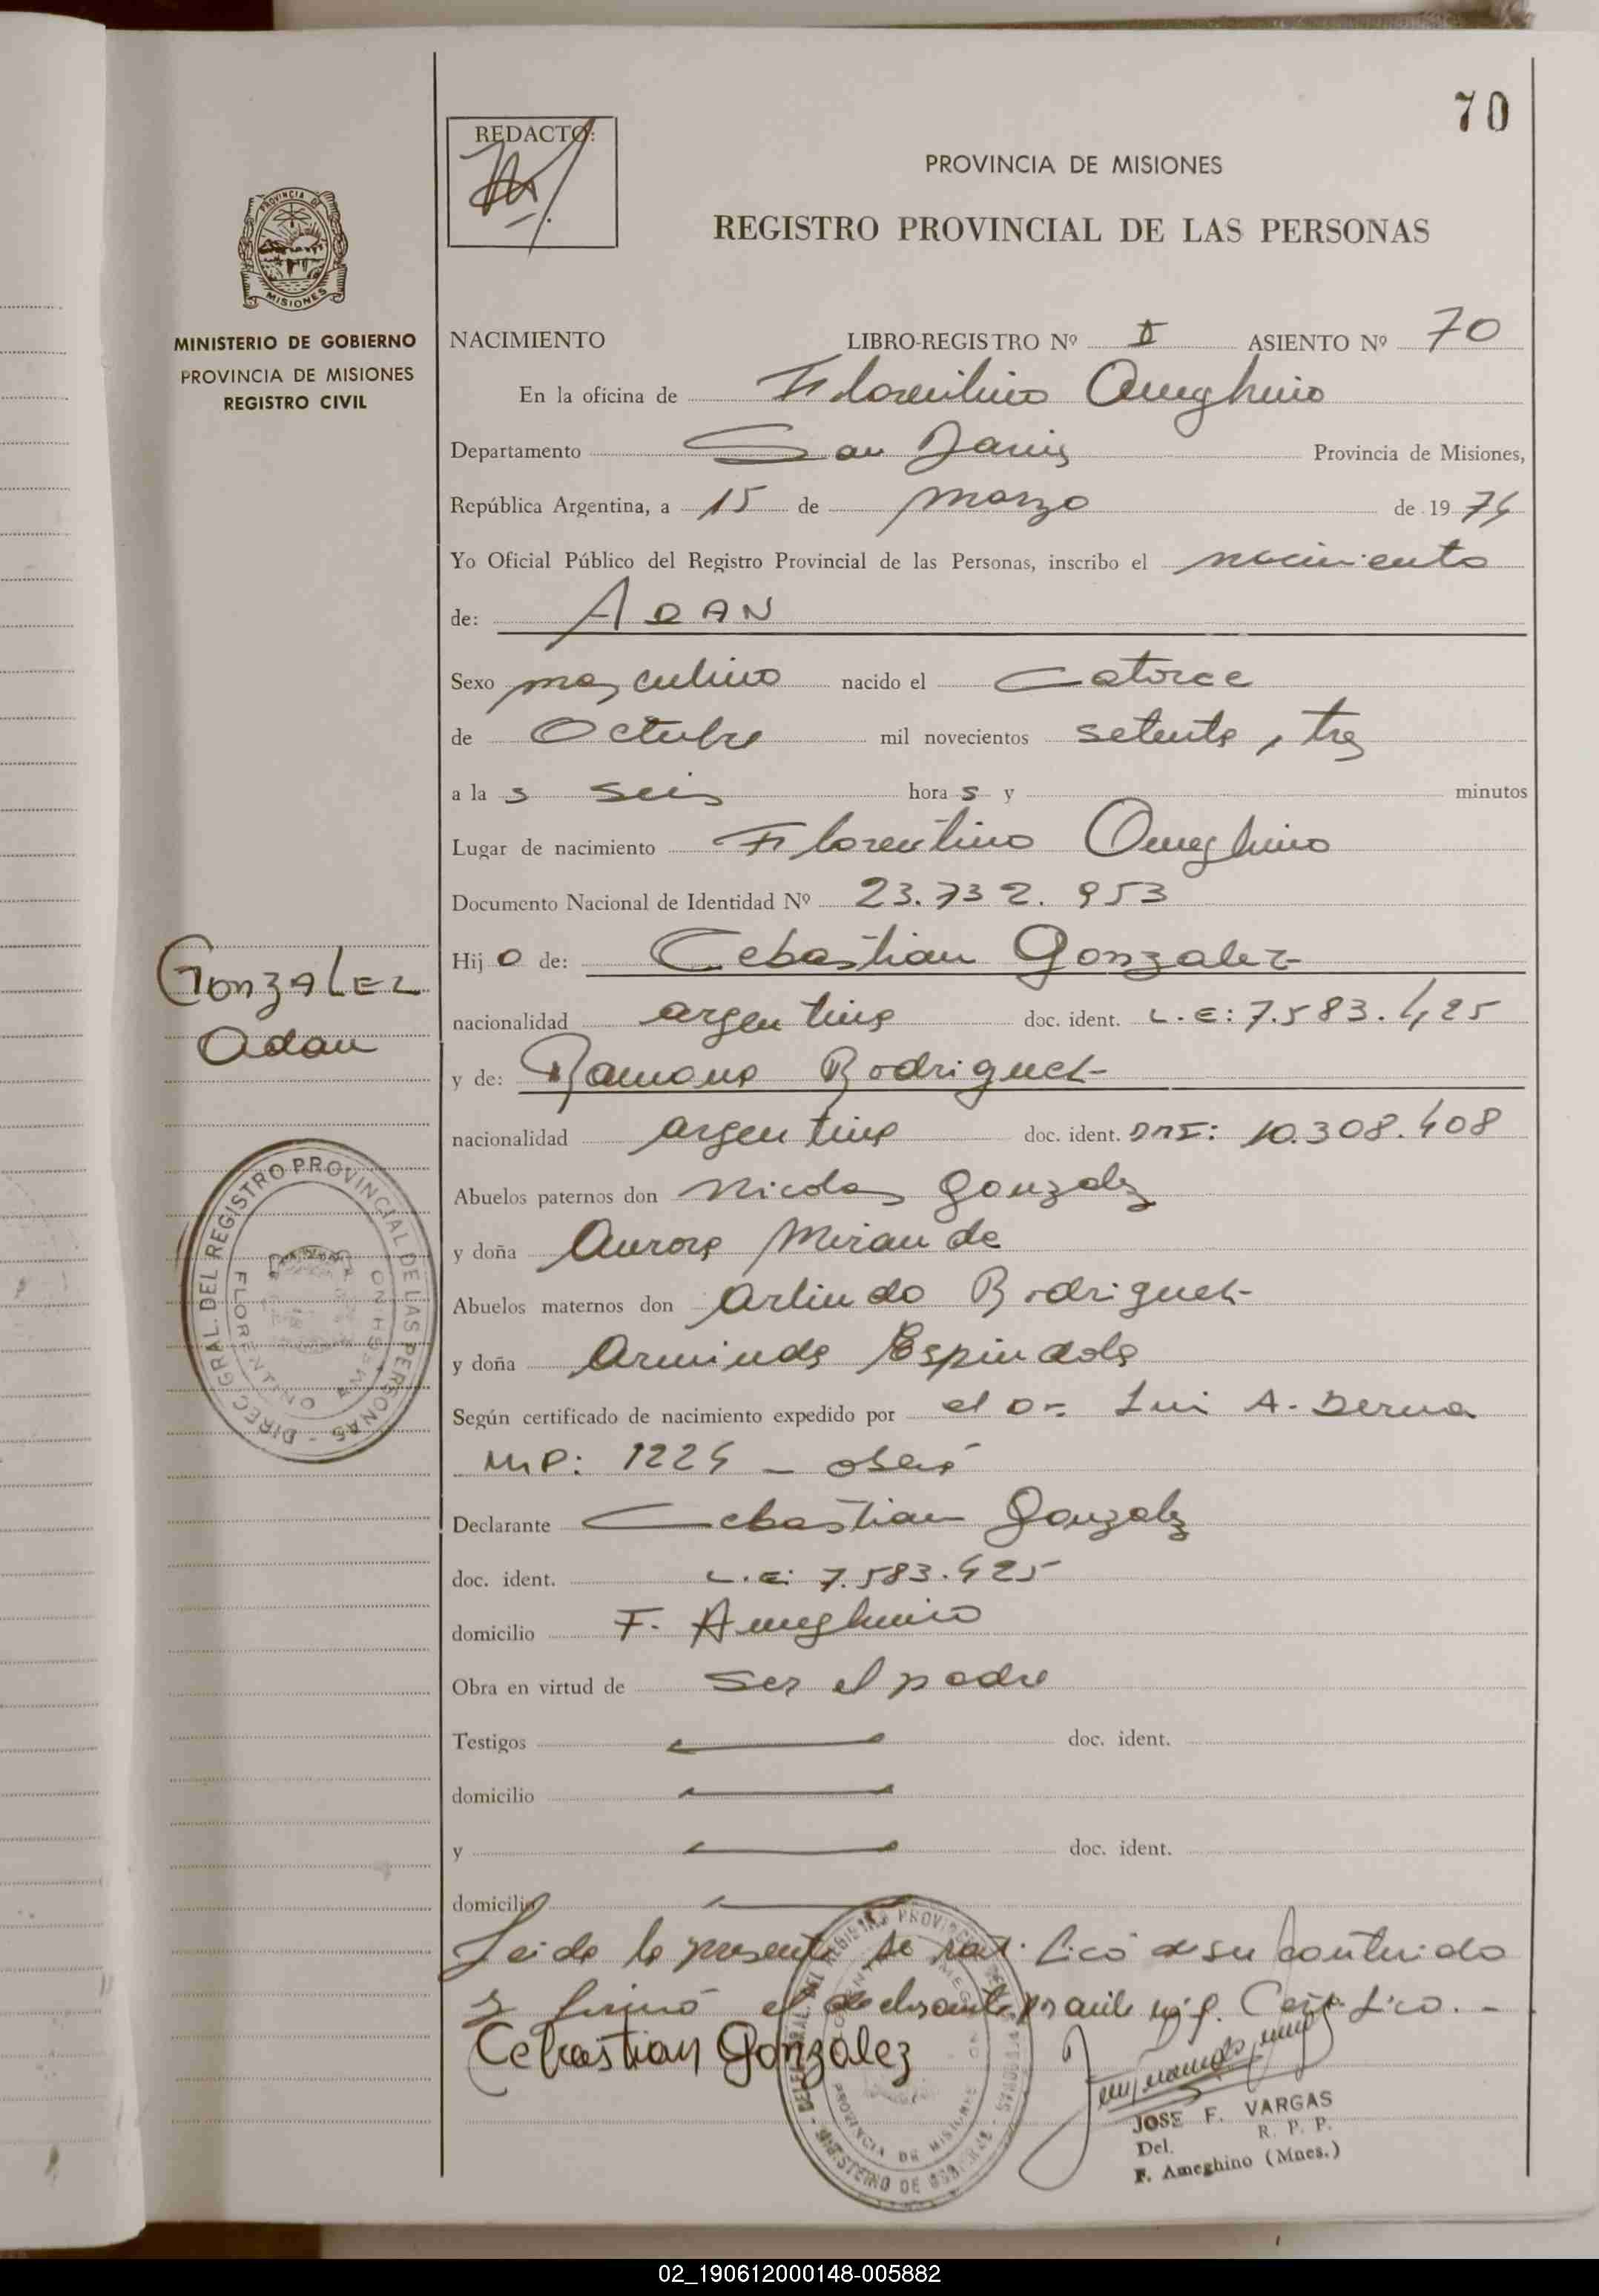 70
REDACTO:
PROVINCIA DE MISIONES
REGISTRO PROVINCIAL DE LAS PERSONAS
PROVINCIA DE
MISIONES
MINISTERIO DE GOBIERNO
PROVINCIA DE MISIONES
REGISTRO CIVIL
NACIMIENTO LIBRO-REGISTRO Nº I ASIENTO Nº 70
En la oficina de Florentino Ameghino
Departamento San Javier Provincia de Misiones,
República Argentina, a 15 de marzo de 1974
Yo Oficial Público del Registro Provincial de las Personas, inscribo el nacimiento
de: ADAN
Sexo masculino nacido el Catorce
de Octubre mil novecientos setenta y tres
a las seis horas y minutos
Lugar de nacimiento Florentino Ameghino
Documento Nacional de Identidad Nº 23.732.953
Hijo de: Cebastian Gonzalez
GONZALEZ
Adan
nacionalidad argentina doc. ident. L.E: 7.583.425
y de: Ramona Rodriguez
nacionalidad argentina doc. ident. DNI: 10.308.408
Abuelos paternos don Nicolas Gonzalez
y doña Aurora Miranda
Abuelos maternos don Arlindo Rodriguez
y doña Arminda Espindola
DIREC. GRAL. DEL REGISTRO PROVINCIAL DE LAS PERSONAS
FLORENTINO AMEGHINO
Según certificado de nacimiento expedido por el Dr. Luis A. Derna
M.P: 1224 - Oberá
Declarante Cebastian Gonzalez
doc. ident. L.E: 7.583.425
domicilio F. Ameghino
Obra en virtud de ser el padre
Testigos doc. ident.
domicilio
y doc. ident.
domicilio
Leida la presente se ratificó de su contenido
y firmó el declarante por ante mí q. Certifico. -
Cebastian Gonzalez
PROVINCIA DE MISIONES
JOSE F. VARGAS
Del. R. P. P.
F. Ameghino (Mnes.)
02_190612000148-005882